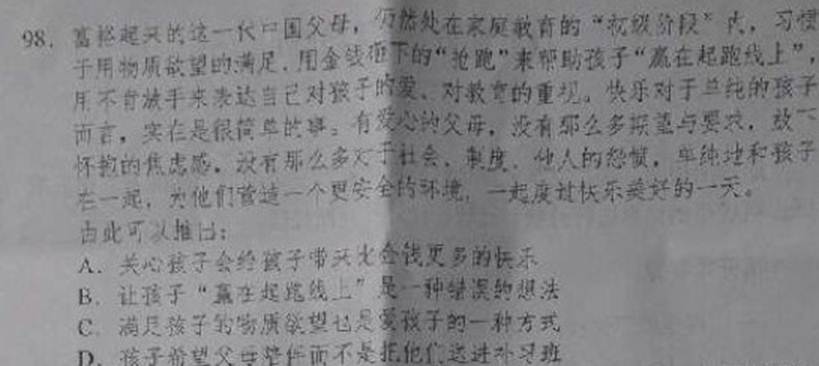 98. 富裕起来的这一代中国父母，仍然处在家庭教育的“初级阶段”内，习惯
于用物质欲望的满足、用金钱砸下的“抢跑”来帮助孩子“赢在起跑线上”，
用不肯放手来表达自己对孩子的爱、对教育的重视。快乐对于单纯的孩子
而言，实在是很简单的事：有爱心的父母，没有那么多期望与要求，放下
怀抱的焦虑感，没有那么多对于社会、制度、他人的怨愤，单纯地和孩子
在一起，为他们营造一个更安全的环境，一起度过快乐美好的一天。
由此可以推出：
A. 关心孩子会给孩子带来比金钱更多的快乐
B. 让孩子“赢在起跑线上”是一种错误的想法
C. 满足孩子的物质欲望也是爱孩子的一种方式
D. 孩子希望父母陪伴而不是把他们送进补习班